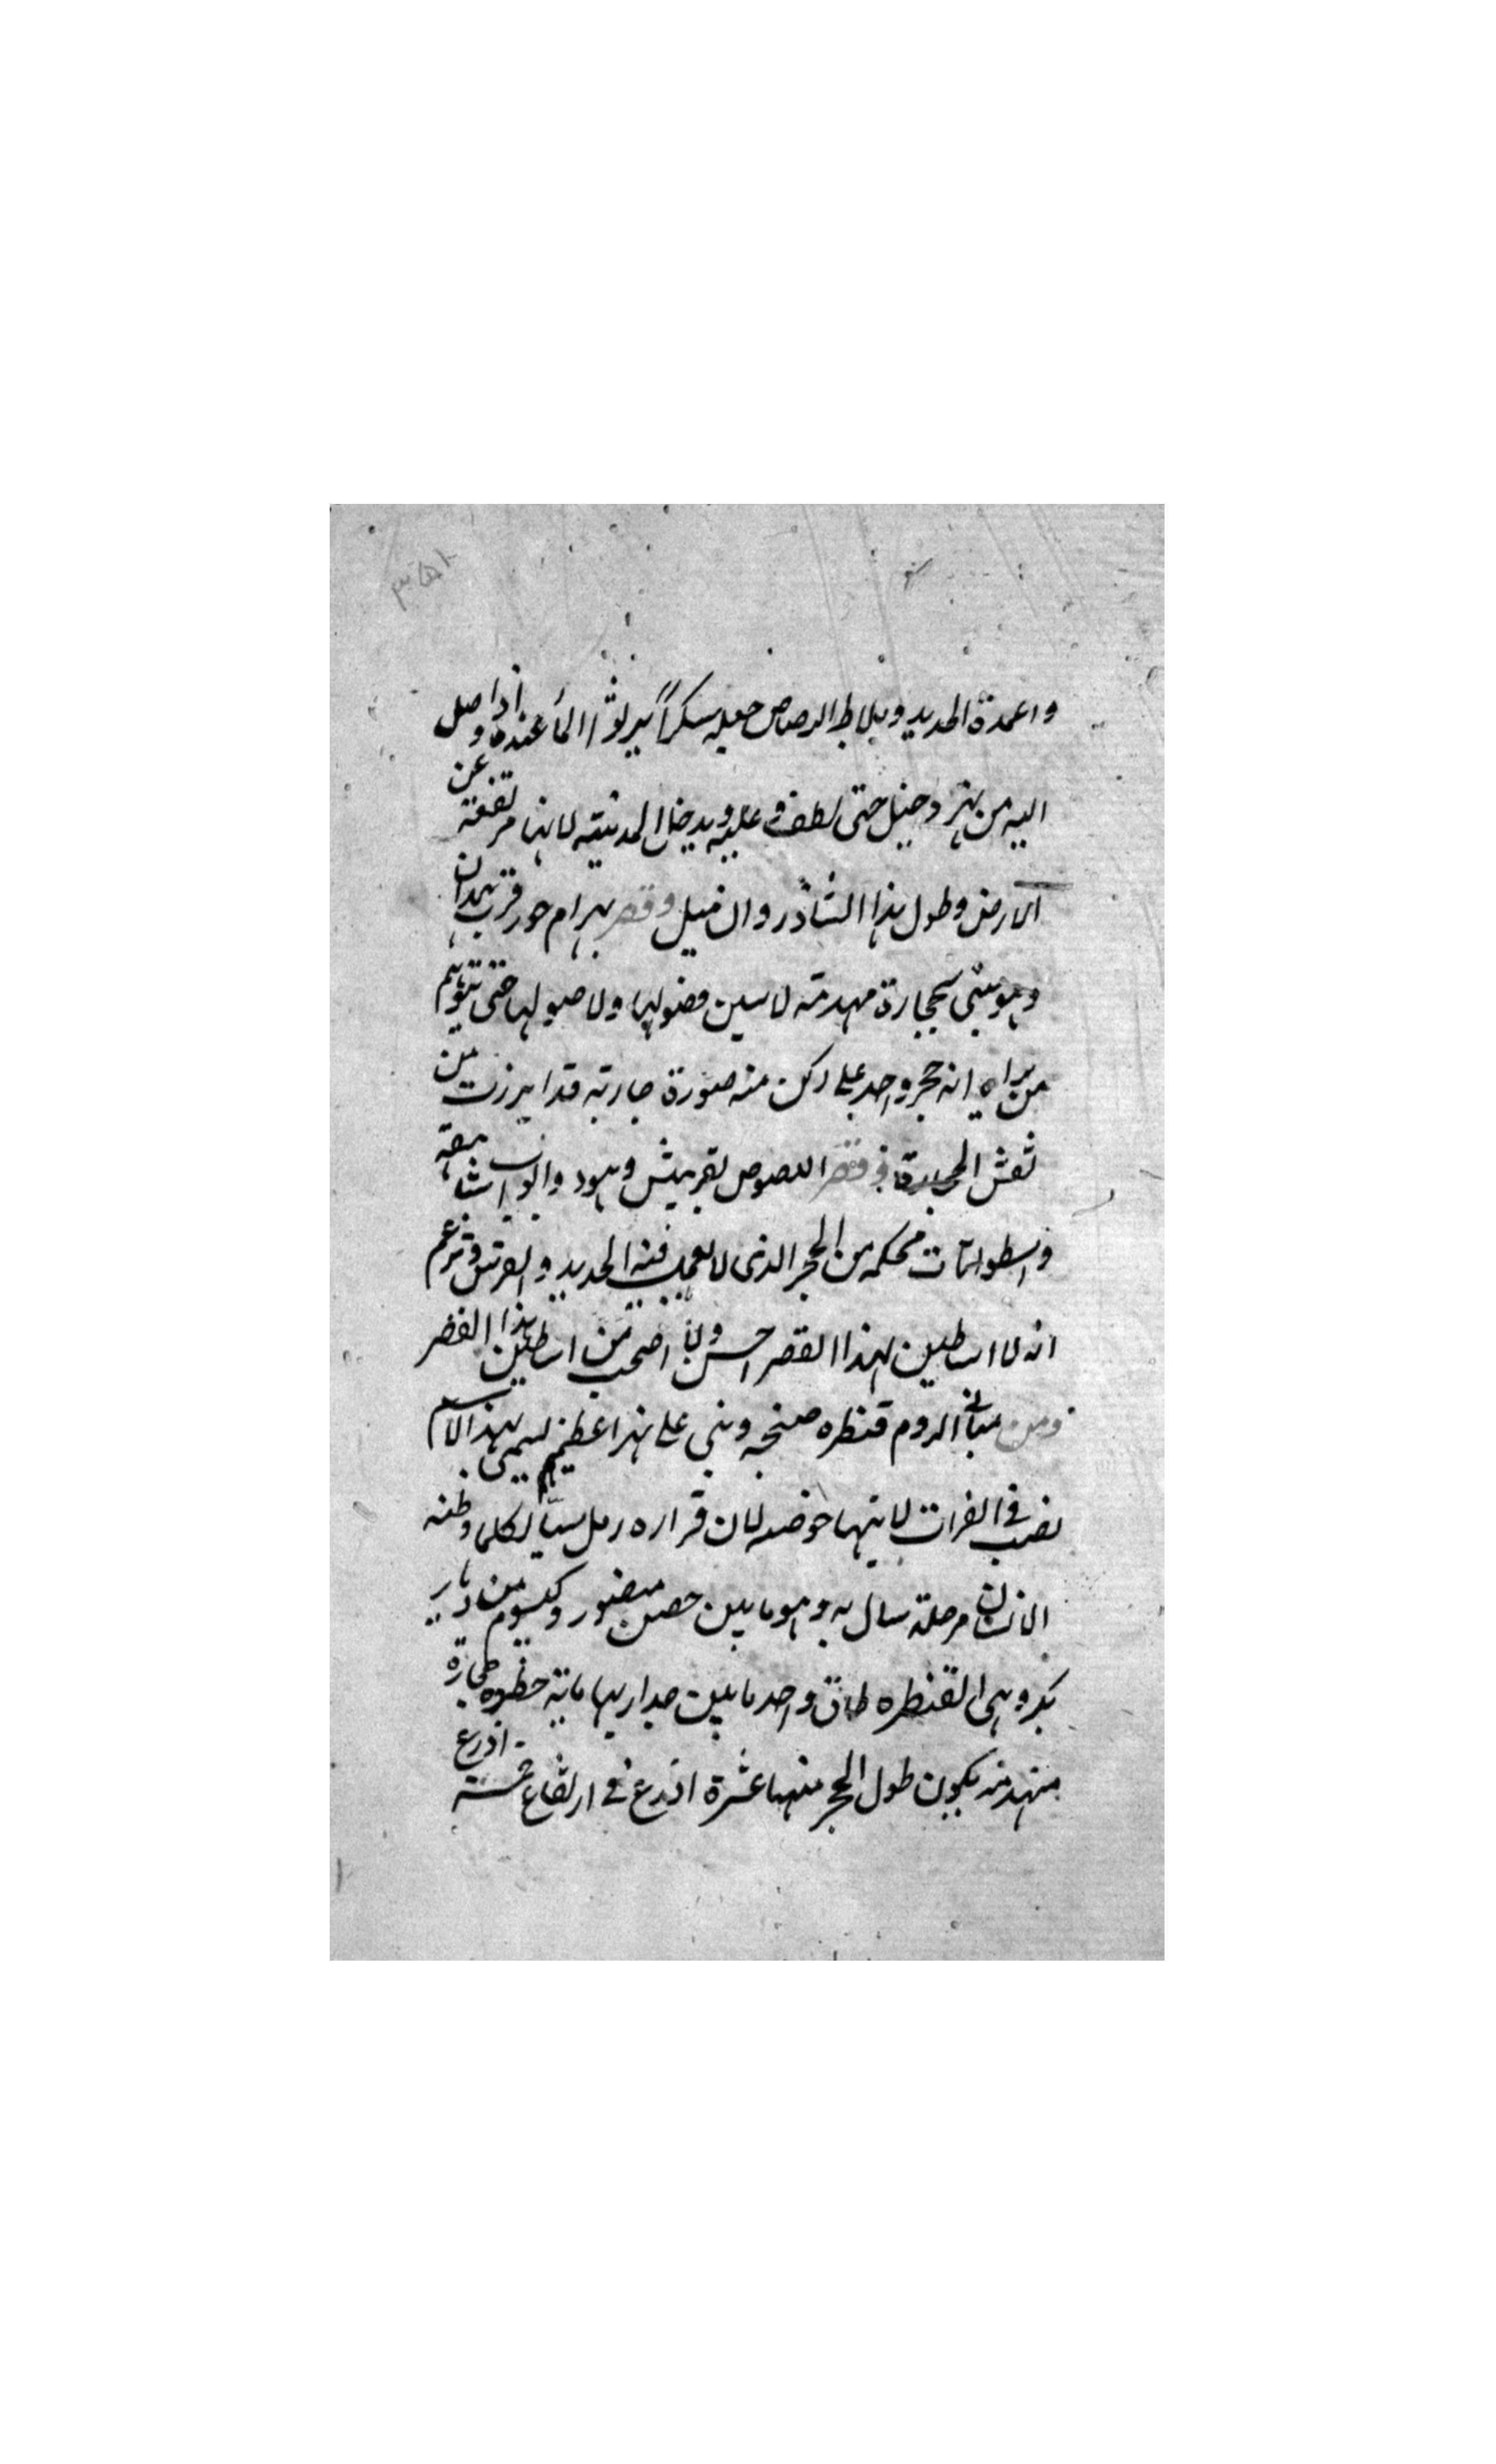 واعمدة الحديد وبلاط الرصاص جعله سكراً يرد الماء عنده اذا وصل
اليه من نهر دجيل حتى يطفو عليه ويدخل المدينة لانها مرتفعة عن
الارض وطول هذا الشاذروان ميل وقصر بهرام جور قرب همدان
وهو مبني بحجارة مهندمة لا يبين فصولها ولا وصولها حتى يتوهم
من يراه انه حجر واحد على ركن منه صورة جارية قد ابرزت من
نقش الحجارة وقصر اللصوص بقرميسين وهو ذو ابواب شاهقة
واسطوانات محكمة من الحجر الذي لا يعمل فيه الحديد والفرس تزعم
انه لا اساطين لهذا القصر احسن ولا اعجب من اساطين هذا القصر
ومن مباني الروم قنطره صنجه وبني على نهر اعظيم يسمى بهذا الاسم
يصب في الفرات لا يتهيا خوضه لان قراره رمل سيال كلما وطئه
الانسان برجله سال به وهو ما بين حصن منصور وكيسوم من ديار
بكر وهي القنطره طاق واحد ما بين جداريها ماية خطوة حجارة
مهندمه يكون طول الحجر منها عشرة اذرع في ارتفاع خمسة اذرع